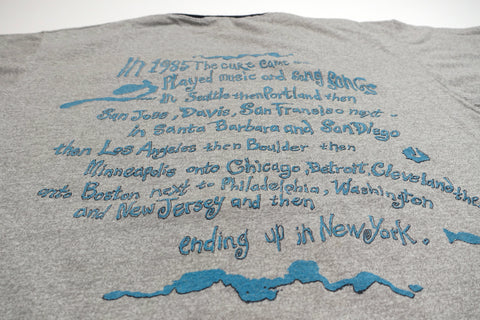 IN 1985 The CURE came
Played music and SANG SONGS
IN Seattle then Portland then
San Jose, Davis, San Fransisco next
in Santa Barbara and San Diego
then Los Angeles then Boulder then
Minneapolis onto Chicago, Detroit, Cleveland the
onto Boston next to Philadelphia, Washington
and New Jersey and then
ending up in New York.